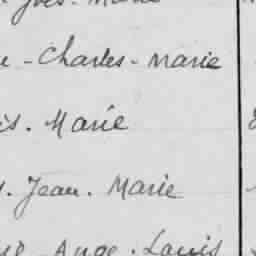 Yves - Marie
- Charles - Marie
is - Marie
. Jean - Marie
Ange - Louis